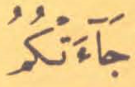 جَآءَتْكُمُ